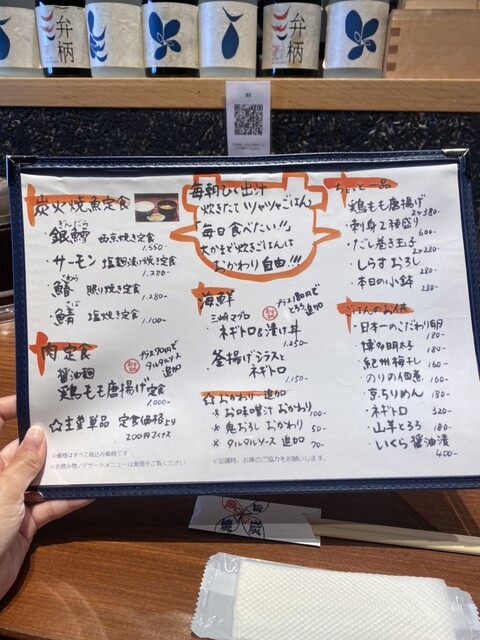 弁柄
弁柄
炭火焼魚定食
ぎんだら
銀鱈 西京焼き定食
1,550-
・サーモン 塩麹漬け焼き定食
1,280-
・鰆 照り焼き定食
1,280-
・鯖 塩焼き定食
1,100-
肉定食
プラス90円で
タルタルソース
追加
醤油麹
鶏もも唐揚げ定食
1,000-
☆主菜単品 定食価格より
200円マイナス
※価格はすべて税込み価格です
※お飲み物/デザートメニューは裏面をご覧ください
毎朝ひく出汁
炊きたて「ツヤツヤごはん」
「毎日食べたい!!」
大かまど炊きごはんは
おかわり自由!!!
海鮮
プラス180円で
とろろ追加
・三崎マグロ
ネギトロ&漬け丼
1,250-
・釜揚げシラスと
ネギトロ
1,150-
☆おかわり・追加
※お味噌汁 おかわり 100-
※鬼おろし おかわり 50-
※タルタルソース 追加 70-
※混雑時、お席のご協力をお願いします。
ちょっと一品
・鶏もも唐揚げ
2ヶ380-
・刺身2種盛り
600-
・だし巻き玉子
2ヶ280-
・しらすおろし 280-
・本日の小鉢 280-
ごはんのお供
・日本一のこだわり卵 180-
・博多明太子 180-
・紀州梅干し 160-
・のりの佃煮 160-
・京ちりめん 180-
・ネギトロ 320-
・山芋とろろ 180-
・いくら醤油漬
400-
魚
旨
焼
炭